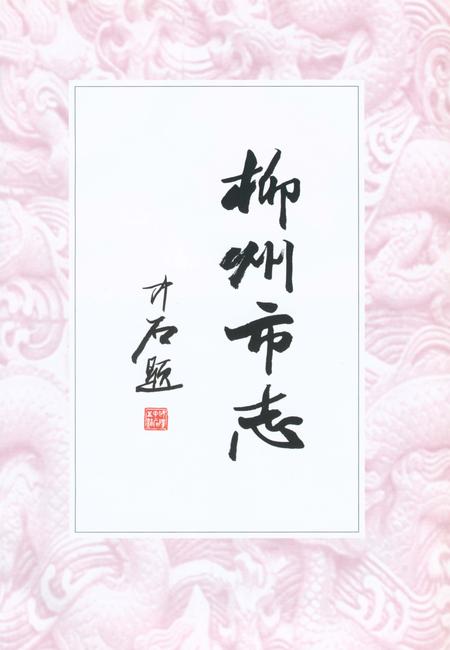 柳州市志
石题